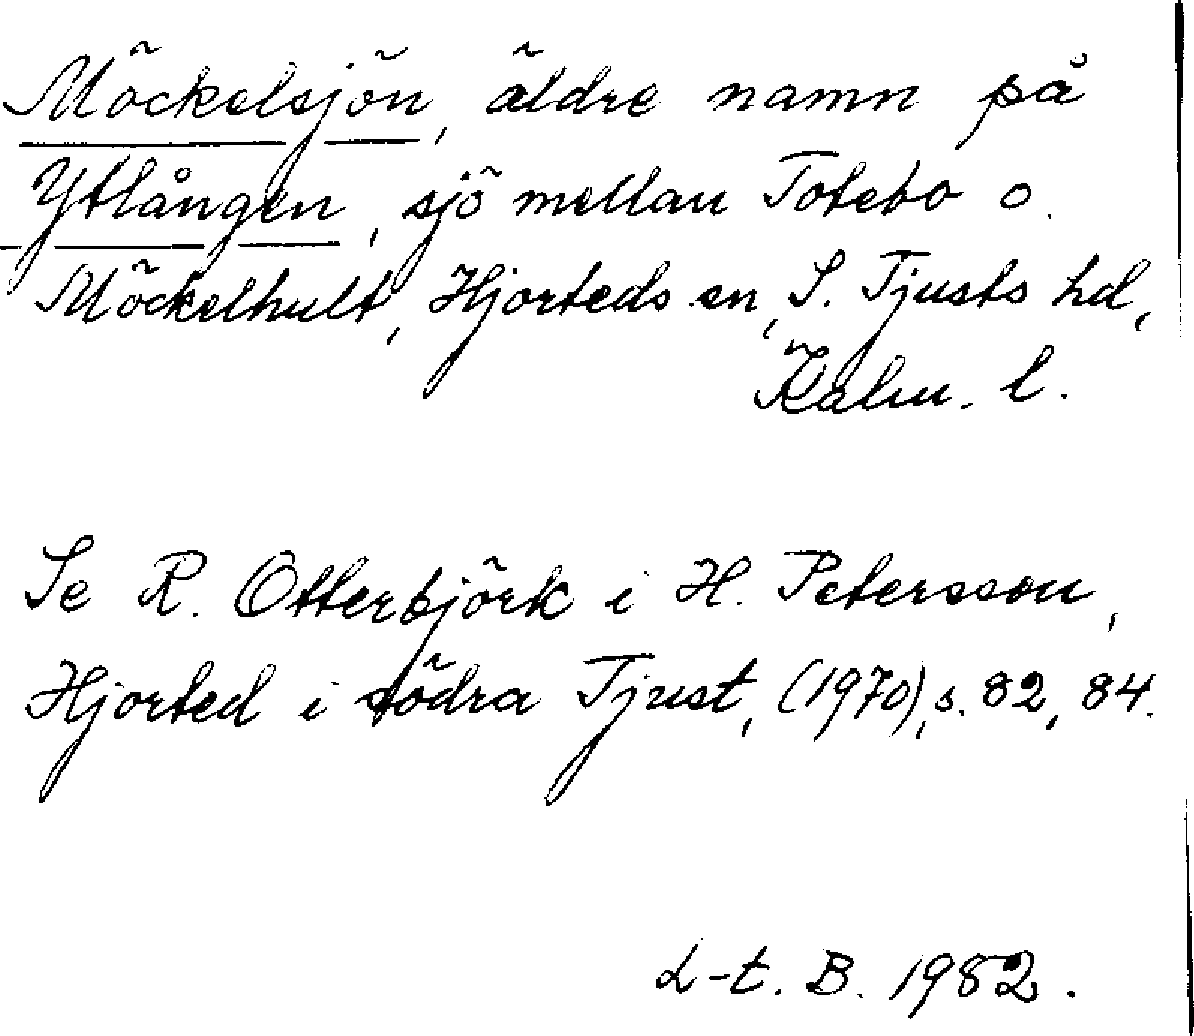 Möckelsjön, äldre namn på
Ytlången, sjö mellan Totebo o.
Möckelhult, Hjorteds sn, S. Tjusts hd,
Kalm. l.
Se R. Otterbjörk i H. Petersson,
Hjorted i södra Tjust, (1970), s. 82, 84.
L-t. B. 1982.